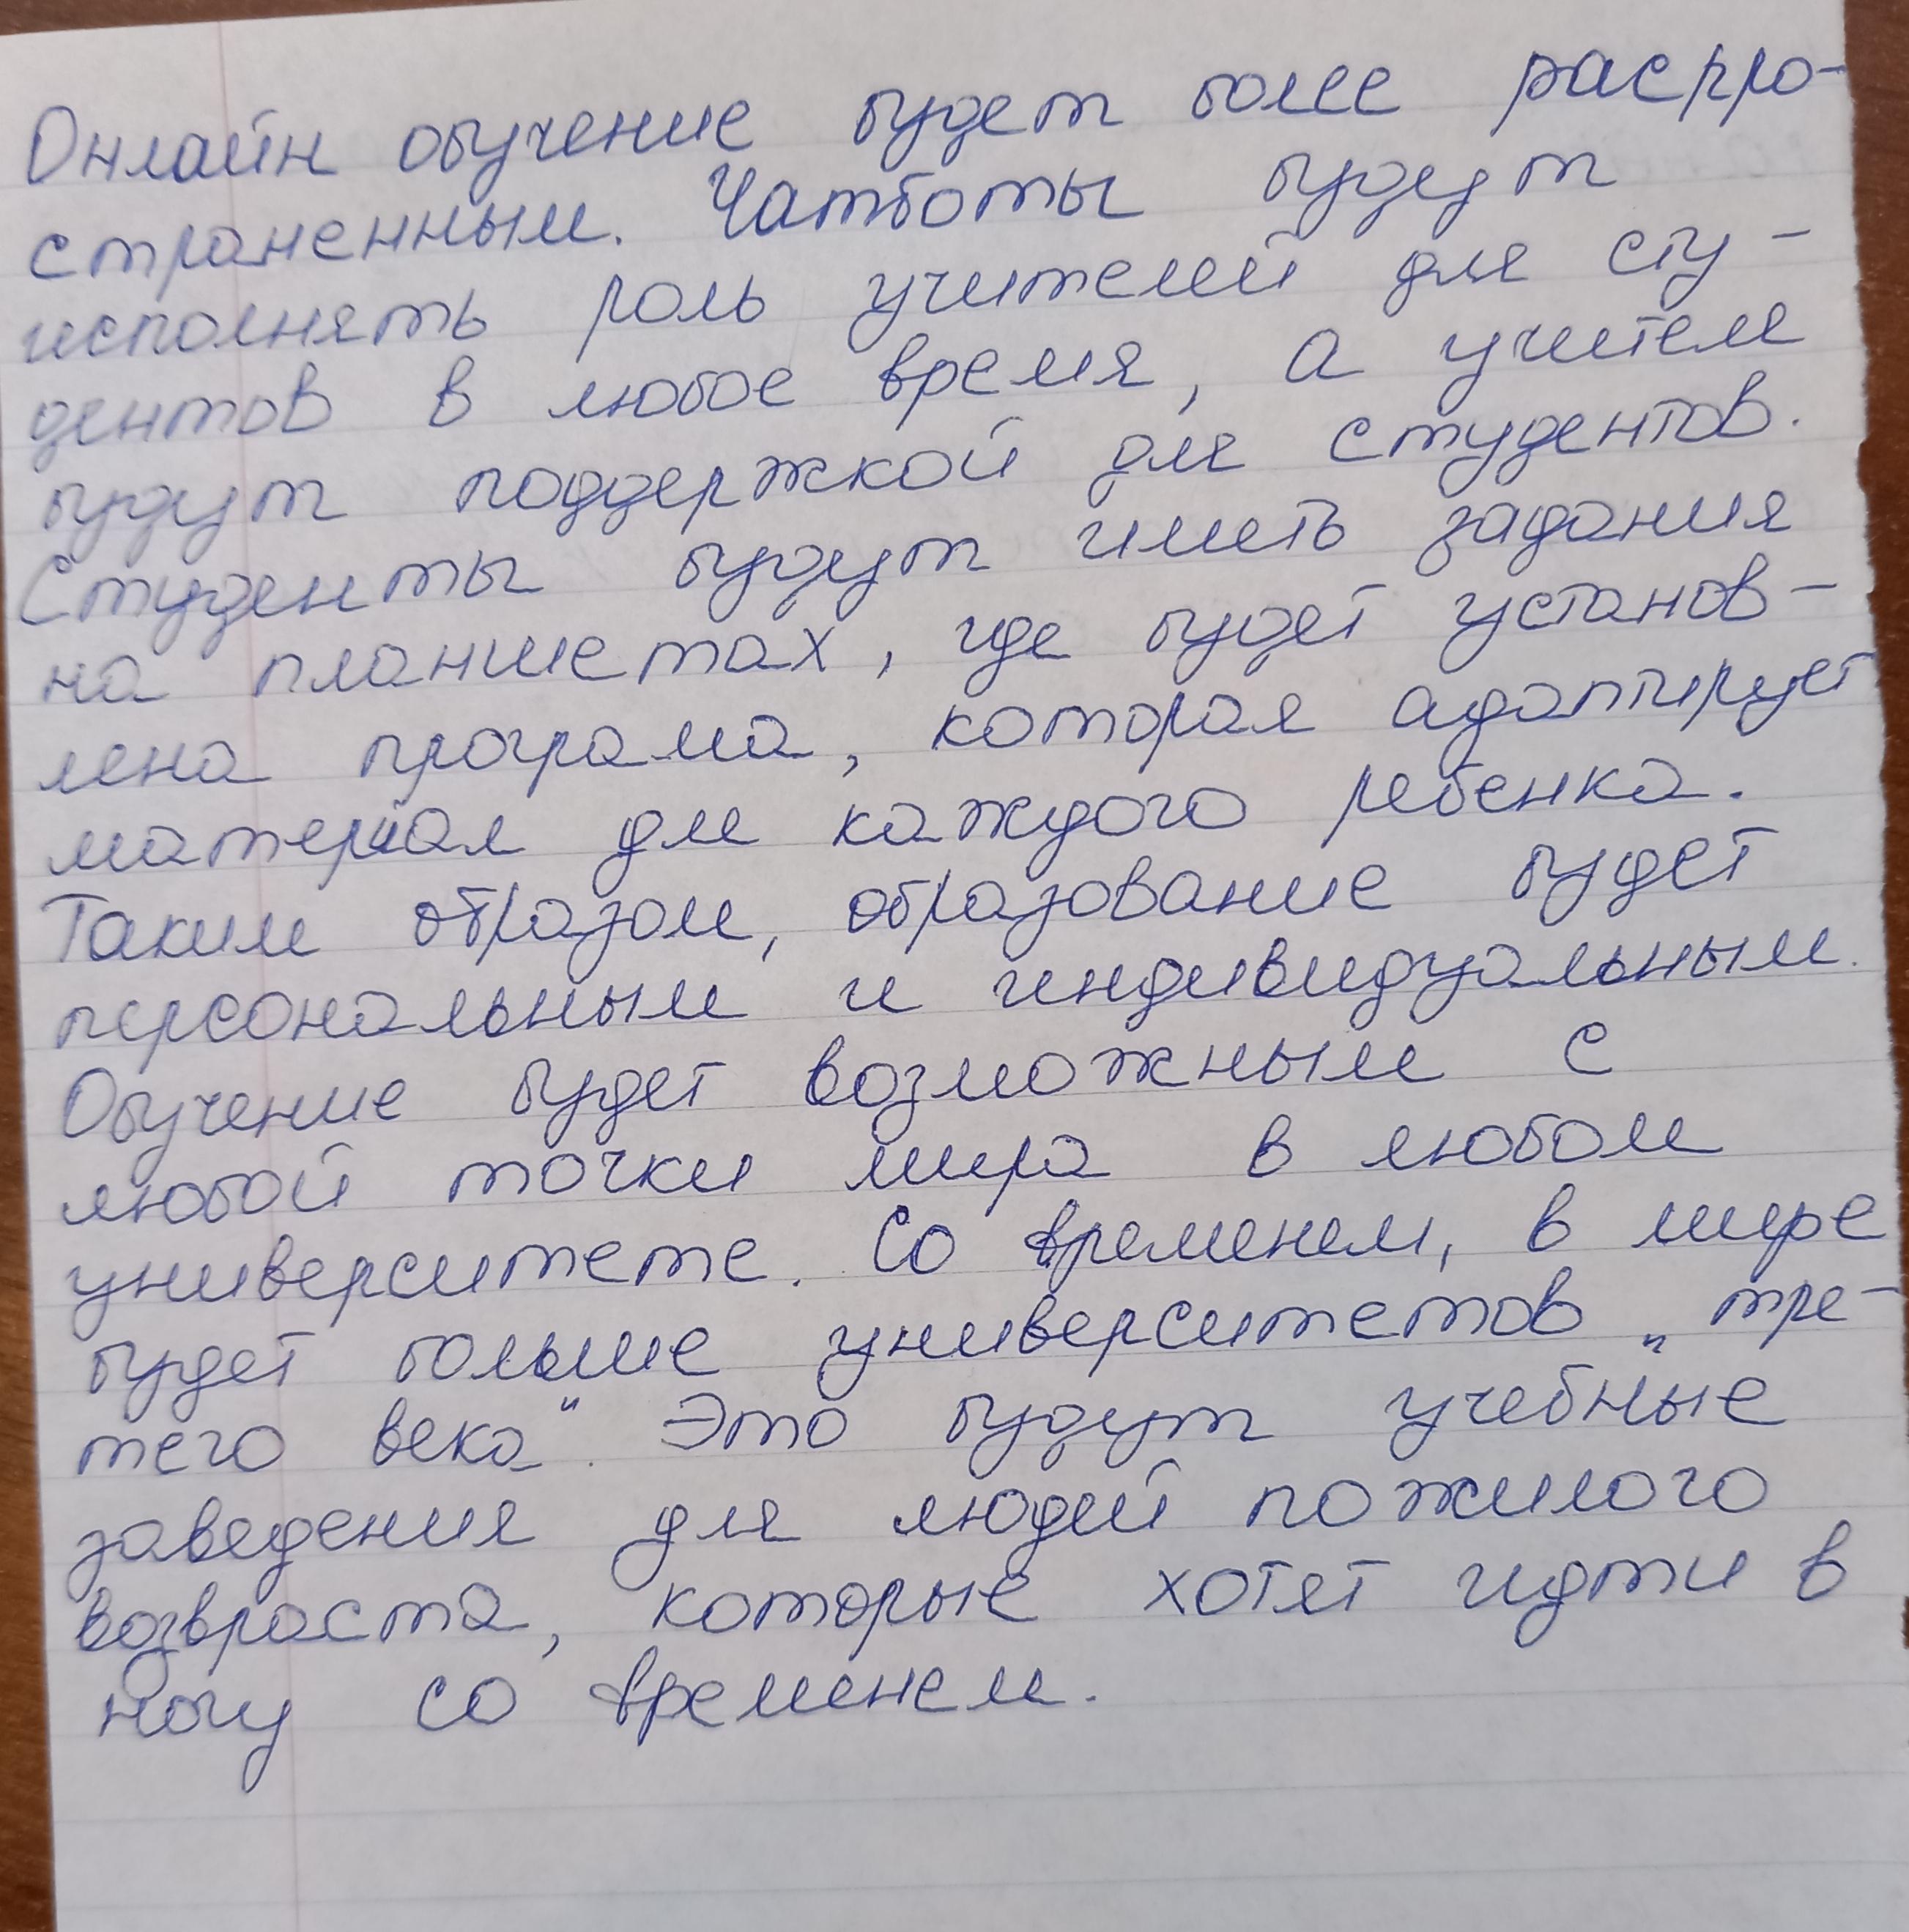 Онлайн обучение будет более распро-
страненным. Чатботы будут
исполнять роль учителей для сту-
дентов в любое время, а учителя
будут поддержкой для студентов.
Студенты будут иметь задания
на планшетах, где будет установ-
лена програма, которая адаптирует
материал для каждого ребенка.
Таким образом, образование будет
персональным и индивидуальным.
Обучение будет возможным с
любой точки мира в любом
университете. Со временем, в мире
будет больше университетов „тре-
тего века". Это будут учебные
заведения для людей пожилого
возвраста, которые хотят идти в
ногу со временем.